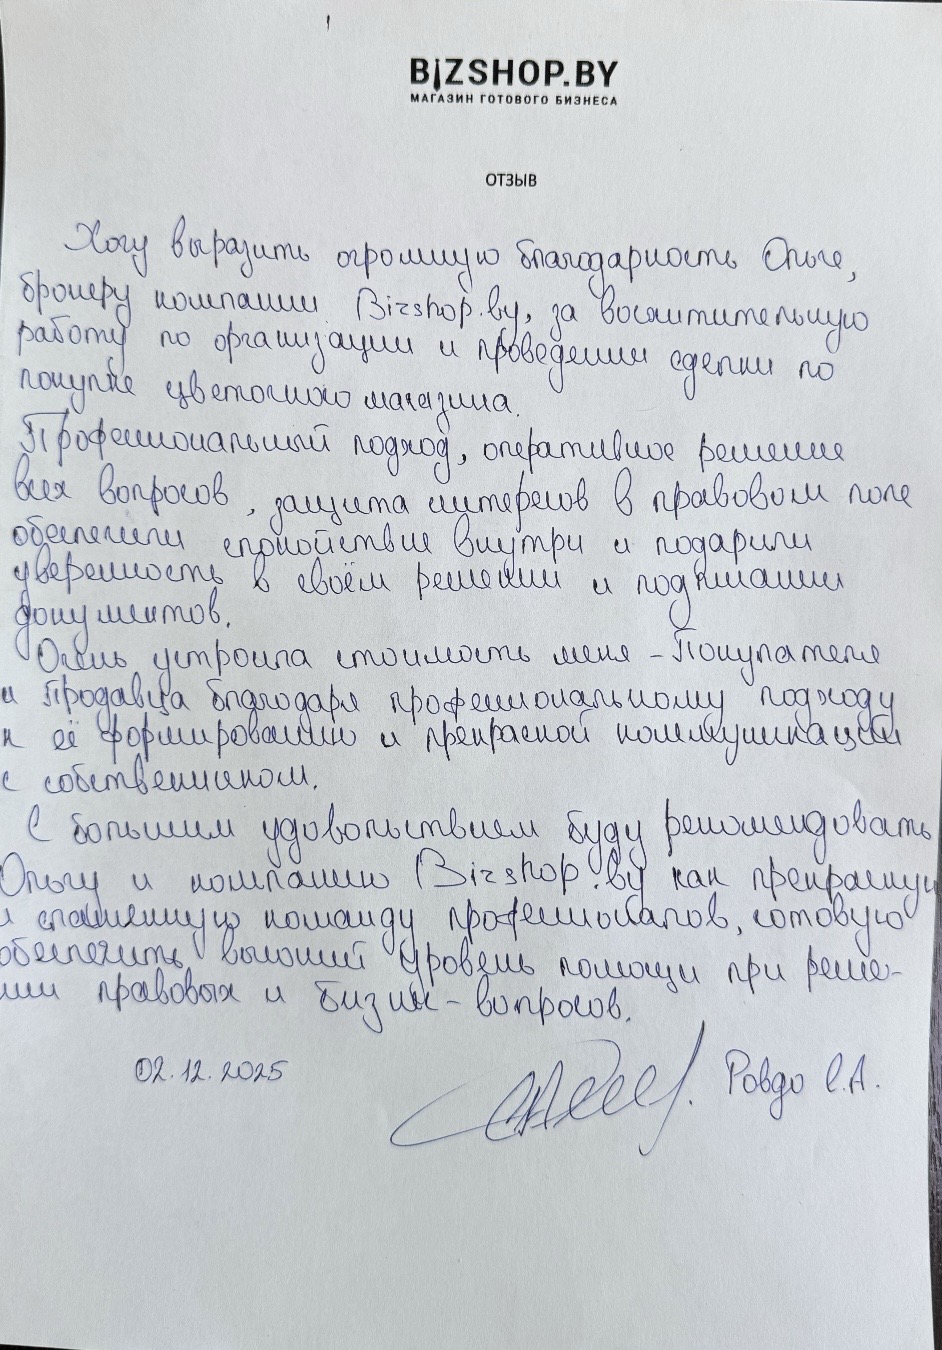 BIZSHOP.BY
МАГАЗИН ГОТОВОГО БИЗНЕСА
ОТЗЫВ
Хочу выразить огромную благодарность Ольге,
брокеру компании Bizshop.by, за восхитительную
работу по организации и проведении сделки по
покупке цветочного магазина.
Профессиональный подход, оперативное решение
всех вопросов, защита интересов в правовом поле
обеспечили спокойствие внутри и подарили
уверенность в своём решении и подписании
документов.
Очень устроила стоимость меня - Покупателя
и Продавца благодаря профессиональному подходу
к её формированию и прекрасной коммуникации
с собственником.
С большим удовольствием буду рекомендовать
Ольгу и компанию Bizshop.by как прекрасную
и слаженную команду профессионалов, готовую
обеспечить высокий уровень помощи при реше-
нии правовых и бизнес-вопросов.
02.12.2025 Ровдо С.А.